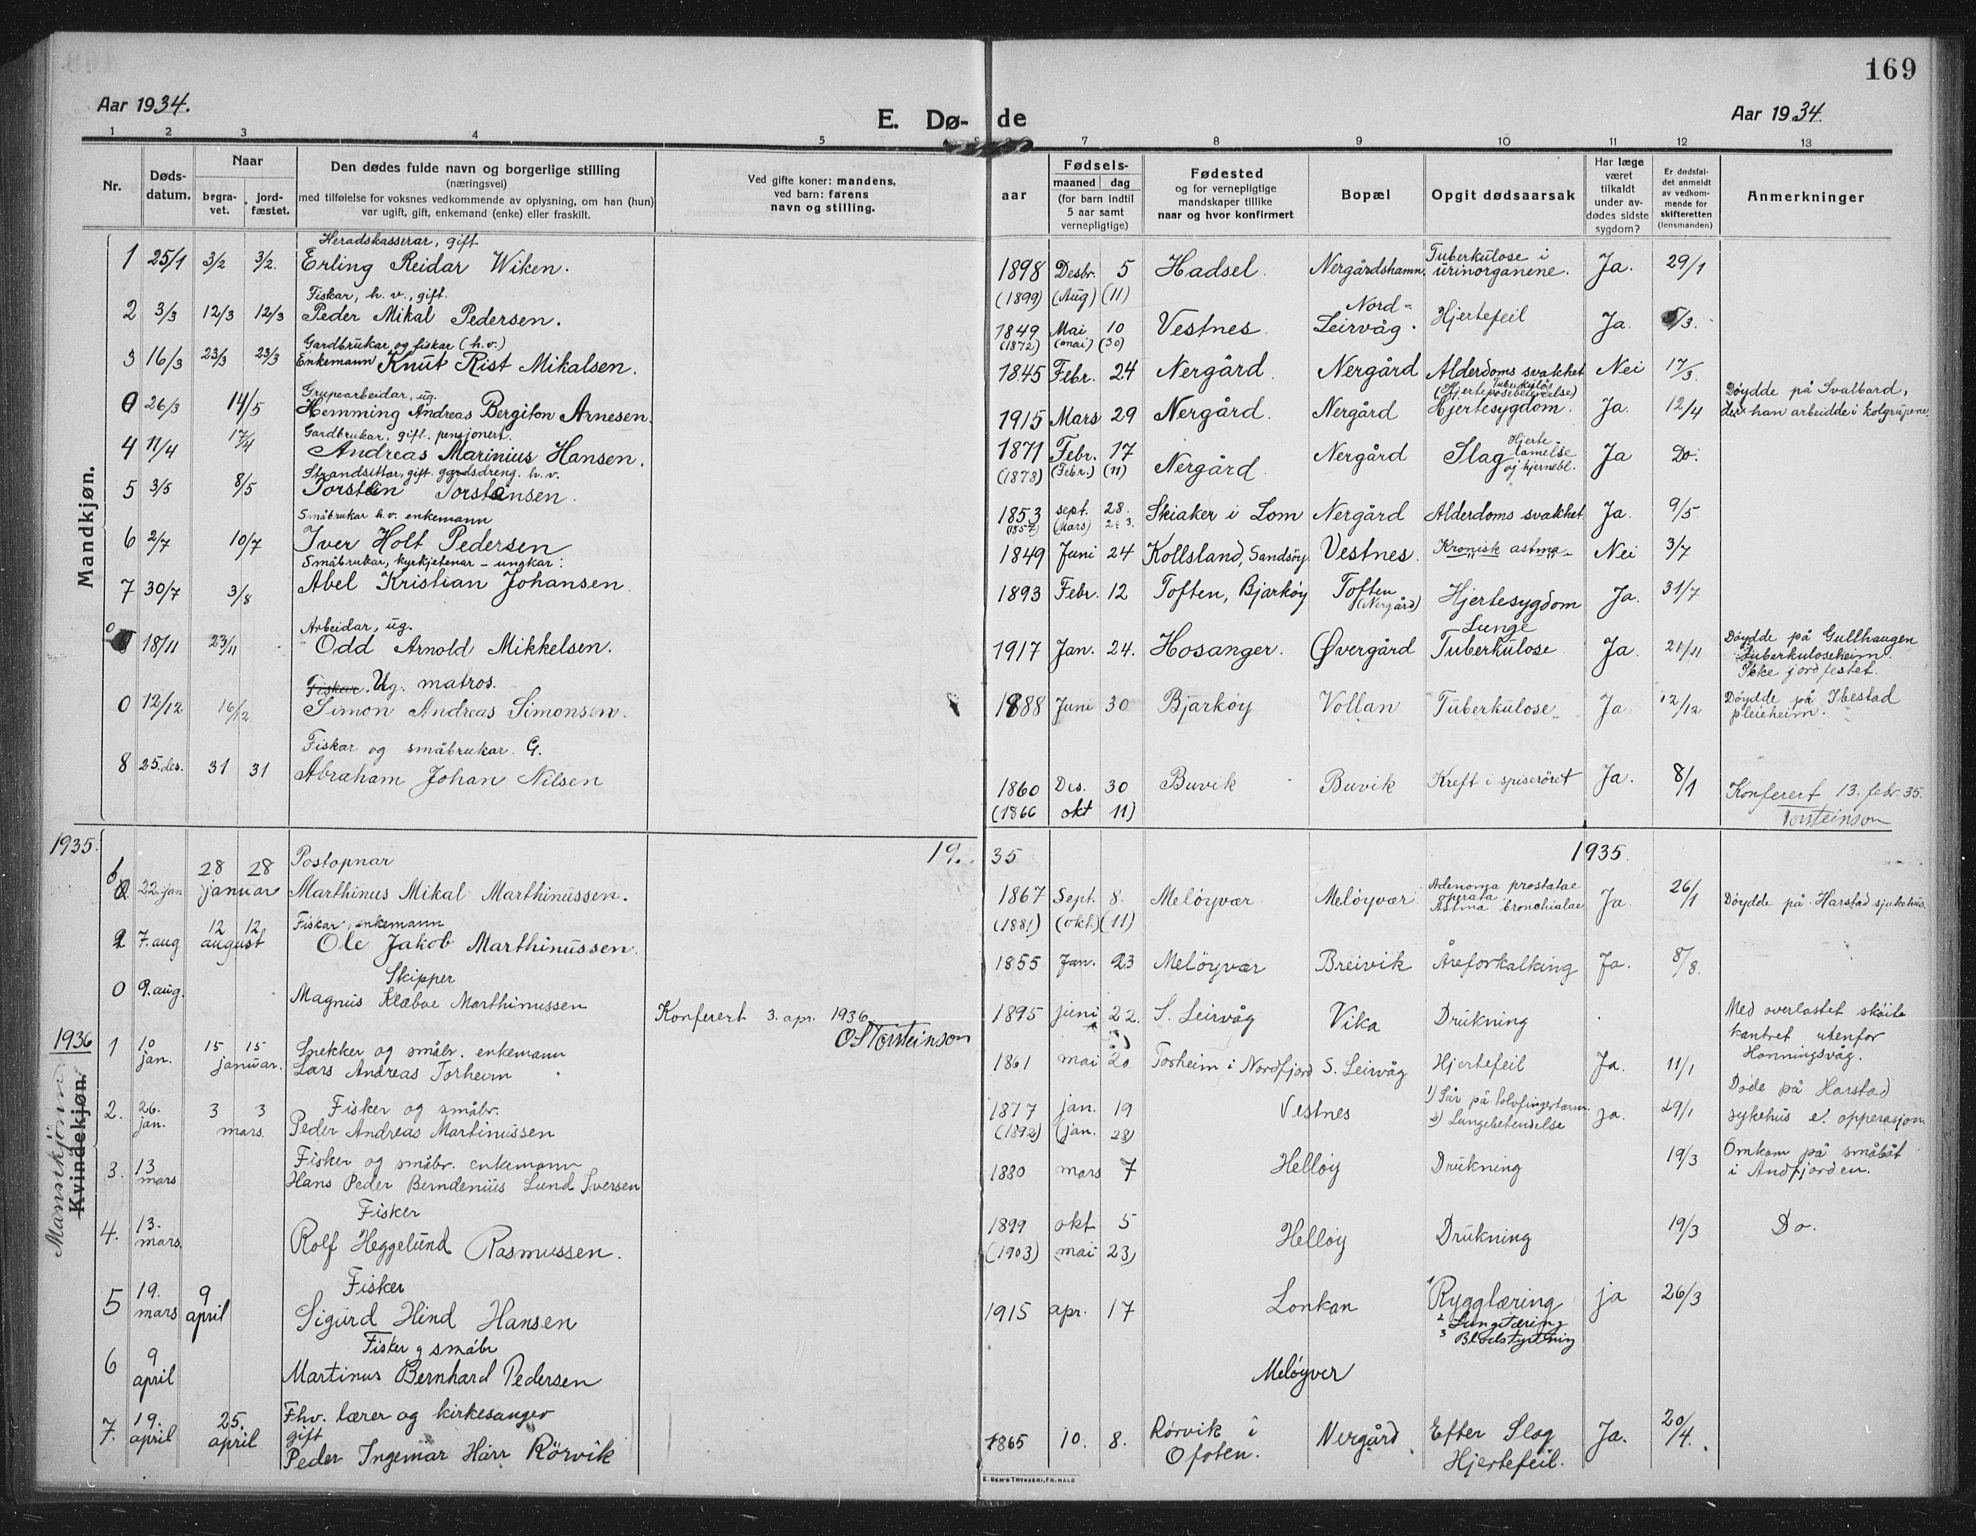 169
Aar 1934.
E. Dø-de
Aar 1934.
1 2 3 4 5 7 8 9 10 11 12 13
Nr.
Døds-
datum.
Naar
begra-
vet.
jord-
fæstet.
Den dødes fulde navn og borgerlige stilling
(næringsvei)
med tilføielse for voksnes vedkommende av oplysning, om han (hun)
var ugift, gift, enkemand (enke) eller fraskilt.
Ved gifte koner: mandens,
ved barn: førens
navn og stilling.
Fødsels-
aar
maaned dag
(for barn indtil
5 aar samt
vernepligtige)
Fødested
og for vernepligtige
mandskaper tillike
naar og hvor konfirmert
Bopæl
Opgit dødsaarsak
Har læge
været
tilkaldt
under av-
dødes sidste
sygdom?
Er dødsfal-
det anmeldt
av vedkom-
mende for
skifteretten
(lensmanden)
Anmerkninger
Mandkjøn.
Heradskasserar, gift
1 25/1 3/2 3/2. Erling Reidar Wiken. 1898 Desbr. 5 Hadsel. Nergårdshamn. Tuberkulose i urinorganene. Ja. 29/1
(1899) (Aug) (11)
Fiskar, h. v., gift.
2 3/3 12/3 12/3 Peder Mikal Pedersen. 1849 Mai 10 Vestnes. Nord-Leirvåg. Hjertefeil Ja. 5/3.
(1872) (mai) (30)
Gardbrukar og fiskar (h.v.)
3 16/3 23/3 23/3 Enkemann Knut Rist Mikalsen. 1845 Febr. 24 Nergård. Nergård Alderdoms svakhet Nei 17/3.
Grupearbeidar, ug.
0 26/3 14/5 Hemming Andreas Bergiton Arnesen. 1915 Mars 29 Nergård. Nergård Hjertesygdom. Ja. 12/4 Døydde på Svalbard, der han arbeidde i kolgrupene.
Gardbrukar, gift. pensjonert.
4 11/4 17/4 Andreas Marinius Hansen. 1871 Febr. 17 Nergård. Nergård Slag Hjerte-lamelse og hjernebl. Ja Do.
(1873) (Febr.) (11)
Strandsittar, gift gardsdreng. h. v.
5 3/5 8/5 Torstein Torstensen. 1853 sept. 28. Skiaker i Lom Nergård Alderdoms svakhet Ja. 9/5
(1857) (Mars)
Småbrukar h.v. enkemann
6 2/7 10/7 Iver Holt Pedersen 1849 Juni 24 Kollsland, Sandsöy. Vestnes. Kronisk astma Nei 3/7
Småbrukar, kyrkjetenar - ungkar.
7 30/7 3/8 Abel Kristian Johansen. 1893 Febr. 12 Toften, Bjarköy Toften (Nergård) Hjertesygdom Ja. 31/7
Arbeidar, ug.
0 18/11 23/11 Odd Arnold Mikkelsen. 1917 Jan. 24. Hosanger. Øvergård Lunge Tuberkulose Ja. 21/11 Døydde på Gullhaugen Tuberkuloseheim. Ikke jordfestet.
Fiskar. Ug. matros.
0 12/12 16/12 Simon Andreas Simonsen. 1888 Juni 30 Bjarköy Vollan Tuberkulose Ja. 12/12 Døydde på Ibestad pleieheim.
Fiskar og småbrukar. G.
8 25. des. 31 31 Abraham Johan Nilsen 1860 Des. 30 Buvik Buvik Kreft i spiserøret Ja. 8/1 Konferert 13. febr. 35.
(1866 okt 11)
Torsteinson
1935. 19. 35 1935.
Postopnar
22. jan 28 28 januar Marthinus Mikal Marthinussen. 1867 Sept. 8. Meløyvær Meløyvær Adenoma prostatae operata Astma bronchialae Ja. 26/1 Døydde på Harstad sjukehus.
(1881) (okt.) (11)
Fiskar, enkemann
2 7. aug 12 12 august Ole Jakob Marthinussen. 1855 Jan. 23 Meløyvær Breivik Åreforkalking Ja. 8/8.
Skipper
0 9. aug. Magnus Klæboe Marthinussen 1895 juni 22. S. Leirvåg Vika Drukning Med overlastet skøite kantret utenfor Honningsvåg.
Konferert 3. apr. 1936
O.S Torsteinson
1936
Mannkjönn
Kvindekjøn.
Snekker og småbr. enkemann
1 10 jan. 15 15 januar. Lars Andreas Torheim 1861 mai 20 Torheim i Nordfjord S. Leirvåg Hjertefeil Ja. 11/1
Fisker og småbr.
2. 26. jan. 3 3 mars. Peder Andreas Martinussen 1877 jan. 19 Vestnes 1) Sår på tolvfingertarm 2) Lungebetendelse ja. 29/1 Døde på Harstad sykehus e. opperasjon.
(1892) (jan. 28)
Fisker og småbr. enkemann
3. 13 mars Hans Peder Berndenius Lund Iversen 1880 mars 7 Helløy Drukning 19/3 Omkom på småbåt i Andfjorden.
Fisker
4. 13. mars. Rolf Heggelund Rasmussen. 1899 okt 5 Helløy Drukning 19/3 Do.
(1903) mai 23)
Fisker
5 19. mars 9 april Sigurd Hind Hansen 1915 apr. 17 Lonkan 1 Ryggtæring 2 Lungetæring 3 Blodstyrtning ja 26/3
Fisker g småbr
6 9 april Martinus Bernhard Pedersen Meløyver
Fhv. lærer og kirkesanger
gift
7. 19. april 25. april Peder Ingemar Harr Rörvik 1865 10. 8. Rørvik i Ofoten. Nergård Efter Slag Hjertefeil. Ja. 20/4.
E. SEM'S TRYKKERI, FR. HALD